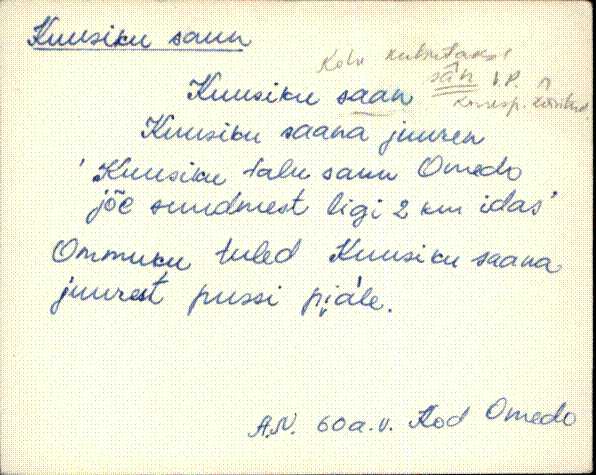 Kuusiku saun
Kuusiku saan
sân V.P.
Kuusiku saana juuren
'Kuusiku talu saun Omedo
jõe suudmest ligi 2 km idas'
Ommuku tuled Kuusiku saana
juurest pussi pi̮äle.
A.N. 60 a.v. Kod Omedo